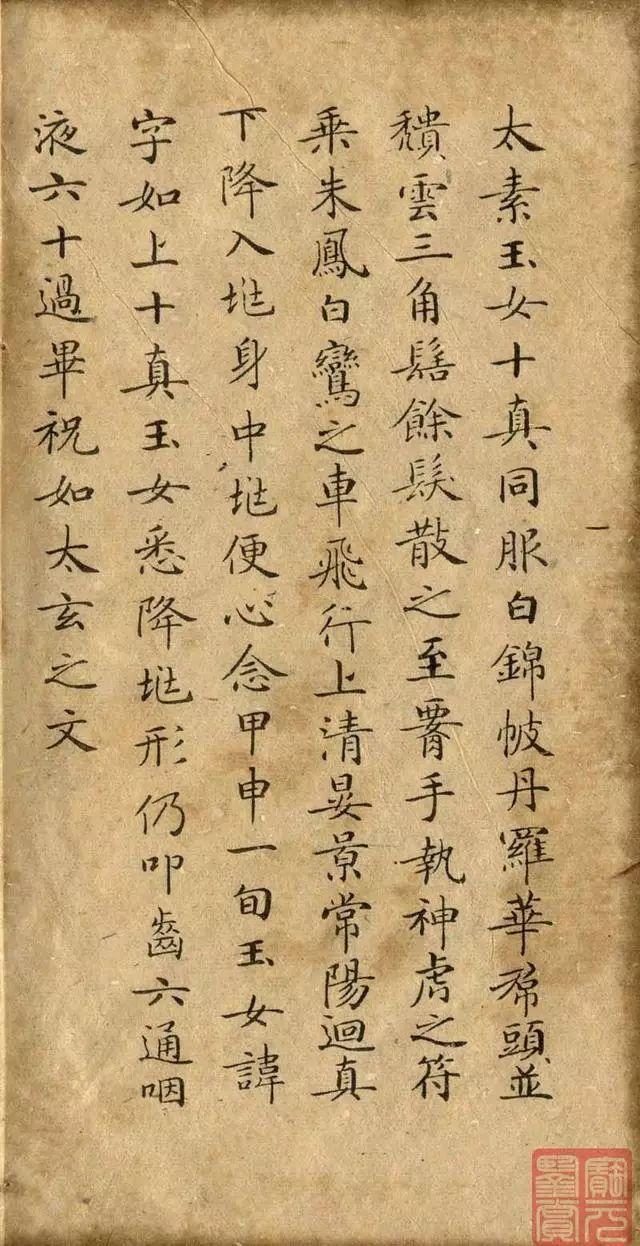 太素玉女十真同服白錦帔丹羅華帬頭並
頹雲三角髻餘髮散之至署手執神虎之符
乘朱鳳白鸞之車飛行上清晏景常陽迴真
下降入兆身中兆便心念甲申一旬玉女諱
字如上十真玉女悉降兆形仍叩齒六通咽
液六十過畢祝如太玄之文